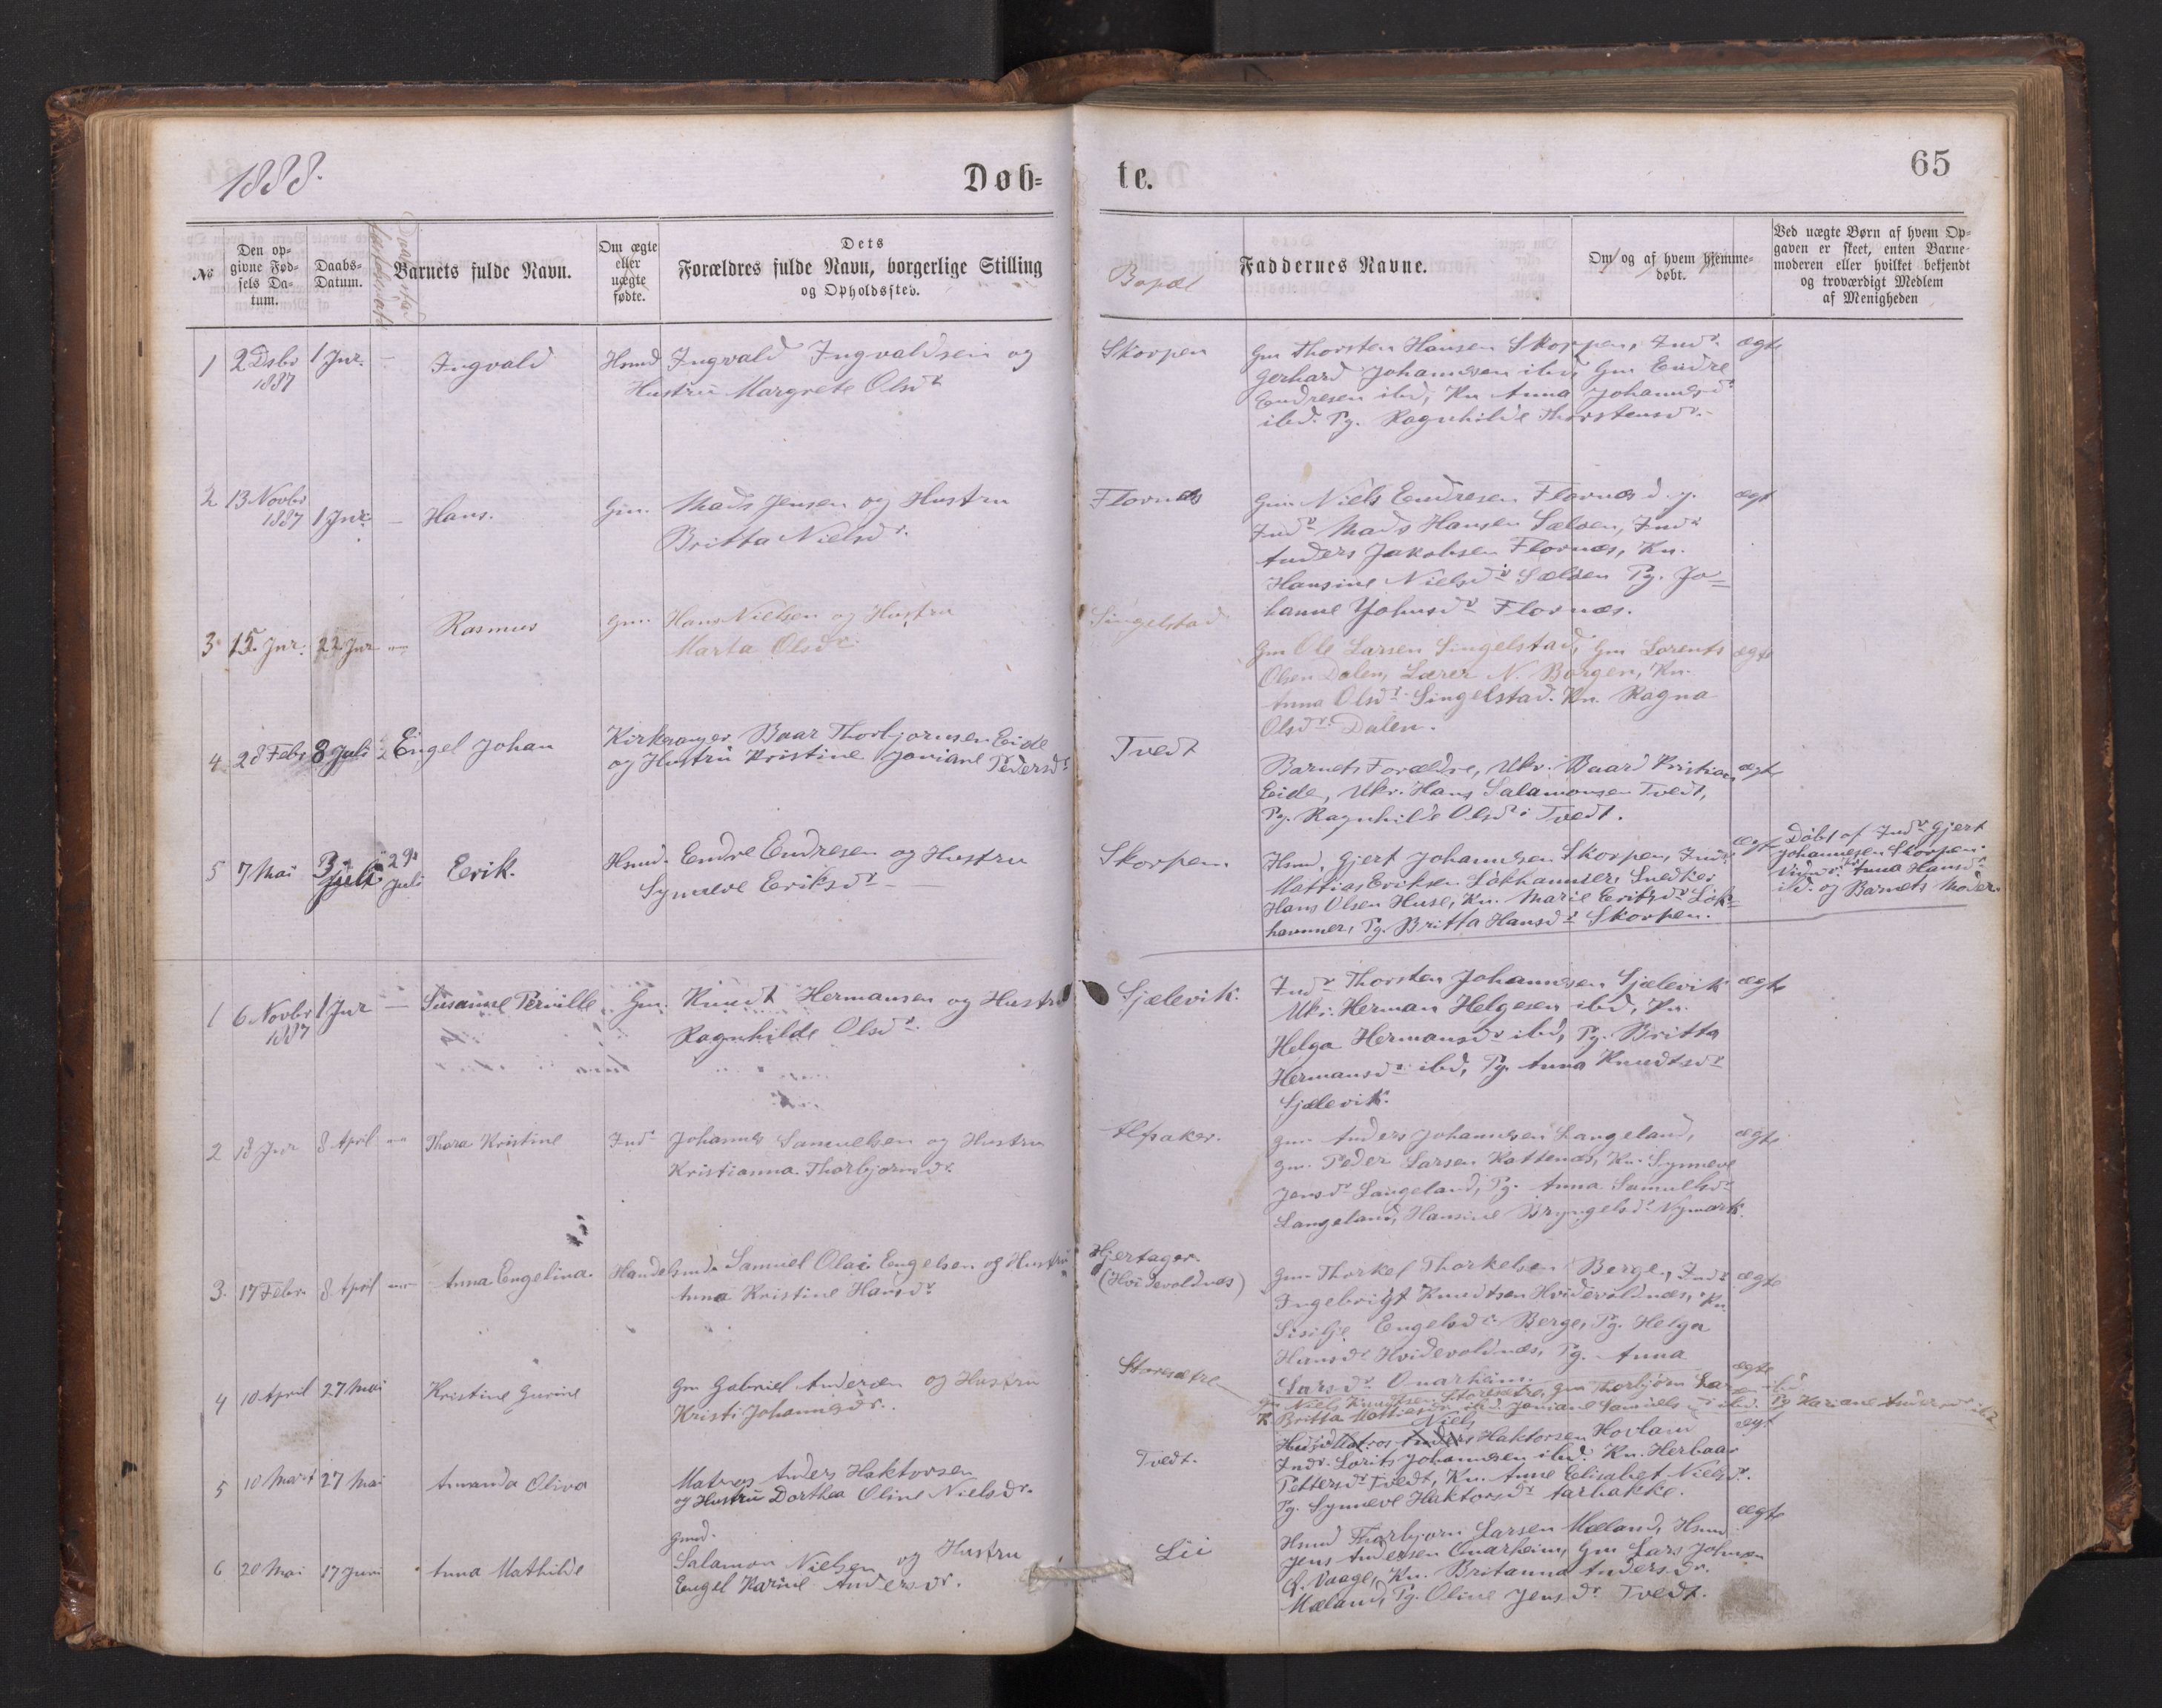 1888.
Døb=
te.
65
№
Den op=
givne Fød=
sels Da=
tum.
Daabs=
Datum.
Barnets fulde Navn.
Om ægte
eller
uægte
fødte.
Dets
Forældres fulde Navn, borgerlige Stilling
og Opholdssted.
Bopæl
Faddernes Navne.
Om og af hvem hjemme=
døbt.
Ved uægte Børn af hvem Op=
gaven er skeet, enten Barne=
moderen eller hvilket bekjendt
og troværdigt Medlem
af Menigheden
1 2 Dsbr 1887 1 Jnr. — Ingvald Hsmd Ingvald Ingvaldsen og
Hustru Margrete Olsdr
Skorpen
Gm Thorsten Hansen Skorpen, Indr ægte
Gerhard Johannesen ibd Gm Endre
Endresen ibd, Kn Anna Johannesdr
ibd. Pg. Ragnhilde Thorstensdr.
2 13 Novbr 1887 1 Jnr. — Hans. Gm. Mads Jensen og Hustru
Britta Nielsdr.
Flornes
Gm Niels Endresen Flornæs d. y. ægt
Indr Mads Hansen Sælden, Indr
Anders Jakobsen Flornæs, Kn.
Hansine Nielsdr Sælden Pg. Jo=
hanne Johnsdr Flornæs.
3 15 Jnr. 22 Jnr — Rasmus Gm. Hans Nielsen og Hustru
Marta Olsdr.
Singelstad
Gm Ole Larsen Singelstad, Gm Lorents ægte
Olsen Dalen, Lærer N. Borgen, Kn.
Anna Olsdr Singelstad. Kn. Ragna
Olsdr Dalen.
4 28 Febr 8 Juli Engel Johan Kirkesanger Baar Thorbjornsen Eide
og Hustru Kristine Joniane Pedersdr
Tvedt
Barnets Forældre, Ukr. Baard Kristian ægte
Eide, Ukr. Hans Salamonsen Tvedt,
Pg. Ragnhilde Olsdr Tvedt.
5 7 Mai 3 Juli 29 Juli Erik. Hsmd. Endre Endresen og Hustru
Synneve Eriksdr —
Skorpen
Hsmd, Gjert Johannesen Skorpen, Indr ægte
Mattias Eriksen Løkhammer, Snedker
Hans Olsen Huse, Kn. Marie Eriksdr Løk=
hammer, Pg. Britta Hansdr Skorpen.
Døbt af Indr Gjert
Johannesen Skorpen.
Vidnr: Anna Hansdr
ibd. og Barnets Moder.
1 6 Novbr 1887 1 Jnr — Susanne Pernille Gm. Knudt Hermansen og Hustru
Ragnhilde Olsdr.
Sjælevik.
Indr Thorsten Johannesen Sjælevik ægte
Ukr. Herman Helgesen ibd, Kn.
Helga Hermansdr ibd, Pg. Britta
Hermansdr ibd, Pg. Anna Knudtsdr
Sjælevik.
2 18 Jnr 8 April — Thora Kristine Indr Johannes Samuelsen og Hustru
Kristianna Thorbjornsdr.
Alfsaker.
Gm Anders Johannesen Langeland, ægte
Gm. Peder Larsen Kattenæs, Kn. Synneve
Jensdr Langeland, Pg. Anna Samuelsdr
Langeland, Hansine Bryngelsdr Nymark.
3. 17 Febr. 8 April — Anna Engelina. Handelsmd. Samuel Olai Engelsen og Hustru
Anna Kristine Hansdr
Hjertager.
(Hvidevoldnæs)
Gm Thorkel Thorkelsen Berge, Indr ægte
Ingebrigt Knudtsen Hvidevoldnæs, Kn.
Sisilje Engelsdr Berge, Pg. Helga
Hansdr Hvidevoldnæs, Pg. Anna
Larsdr Onarheim.
4 10 April 27 Mai Kristine Gurine Gm Gabriel Andersen og Hustru
Kristi Johannesdr.
Storesætre
ægte
Gm Niels Knudtsen Storesætre, Gm Thorbjørn Larsen ibd.
K. Britta Mattiesdr ibd. Joniane Samuelsdr ibd. Pg Kariane Andersdr ibd
5 10 Marts 27 Mai Amanda Oliva Matros Anders Haktorsen
og Hustru Dorthea Oline Nielsdr.
Tvedt.
Niels
Haktorsen Hovland ægt
Indr. Lorits Johannesen ibd. Kn. Herbaar
Pettersdr Tvedt, Kn. Anne Elisabet Nielsdr.
Pg. Synneve Haktorsdr Aarbakke.
6 20 Mai 17 Juni Anna Mathilde Gmd.
Salamon Nielsen og Hustru
Engel Karine Andersdr.
Lii
Hsmd Thorbjorn Larsen Mæland, Hsmd ægte
Jens Andersen Onarheim, Gm Lars Johnsen
Vaage, Kn. Britanna Andersdr.
Mæland, Pg. Oline Jensdr Tvedt.